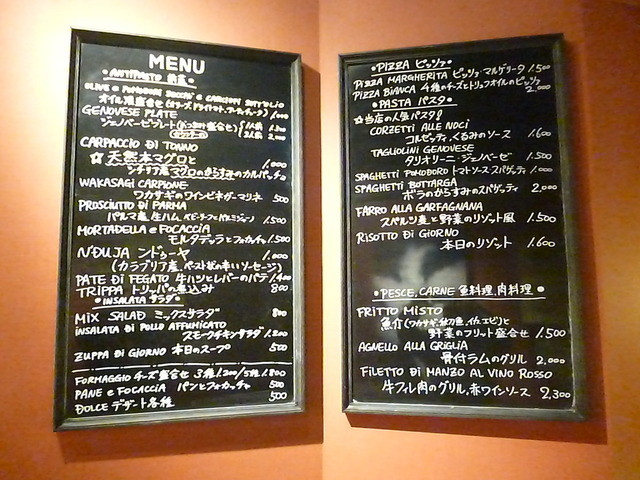 MENU
・ANTIPASTO 前菜・
OLIVE e POMODORI SECCHI e CARCIOFI SOTTOLIO
オイル漬盛合せ(オリーブ,ドライトマト,アーティチョーク) 1,000
GENOVESE PLATE
ジェノバーゼプレート
CARPACCIO DI TONNO
☆天然本マグロと 1,000
シチリア産マグロのからすみのカルパッチョ
WAKASAGI CARPIONE
ワカサギのワインビネガーマリネ 500
PROSCIUTTO DI PARMA
パルマ産生ハム 1,500
MORTADELLA e FOCACCIA
モルタデッラとフォカッチャ 1,500
N'DUJA ンドゥーヤ 1,000
(カラブリア産,ペースト状の辛いソーセージ)
PATE DI FEGATO 牛ハツとレバーのパテ 1,400
TRIPPA トリッパの煮込み 800
・INSALATA サラダ・
MIX SALAD ミックスサラダ 800
INSALATA DI POLLO AFFUMICATO
スモークチキンサラダ 1,200
ZUPPA DI GIORNO 本日のスープ 500
FORMAGGIO チーズ盛合せ 3種1,200/5種1,800
PANE e FOCACCIA パンとフォカッチャ 500
DOLCE デザート各種 500
・PIZZA ピッツァ・
PIZZA MARGHERITA ピッツァ マルゲリータ 1,500
PIZZA BIANCA 4種のチーズとトリュフオイルのピッツァ 2,000
・PASTA パスタ・
☆当店の人気パスタ!
CORZETTI ALLE NOCI
コルゼッティ,くるみのソース 1,600
TAGLIOLINI GENOVESE
タリオリーニ・ジェノベーゼ 1,500
SPAGHETTI POMODORO トマトソーススパゲッティ 1,000
SPAGHETTI BOTTARGA
ボラのからすみのスパゲッティ 2,000
FARRO ALLA GARFAGNANA
スペルツ麦と野菜のリゾット風 1,500
RISOTTO DI GIORNO
本日のリゾット 1,600
・PESCE, CARNE 魚料理,肉料理・
FRITTO MISTO
魚介(ワカサギ,秋刀魚,イカ,エビ)と
野菜のフリット盛合せ 1,500
AGNELLO ALLA GRIGLIA
骨付ラムのグリル 2,000
FILETTO DI MANZO AL VINO ROSSO
牛フィレ肉のグリル,赤ワインソース 2,300